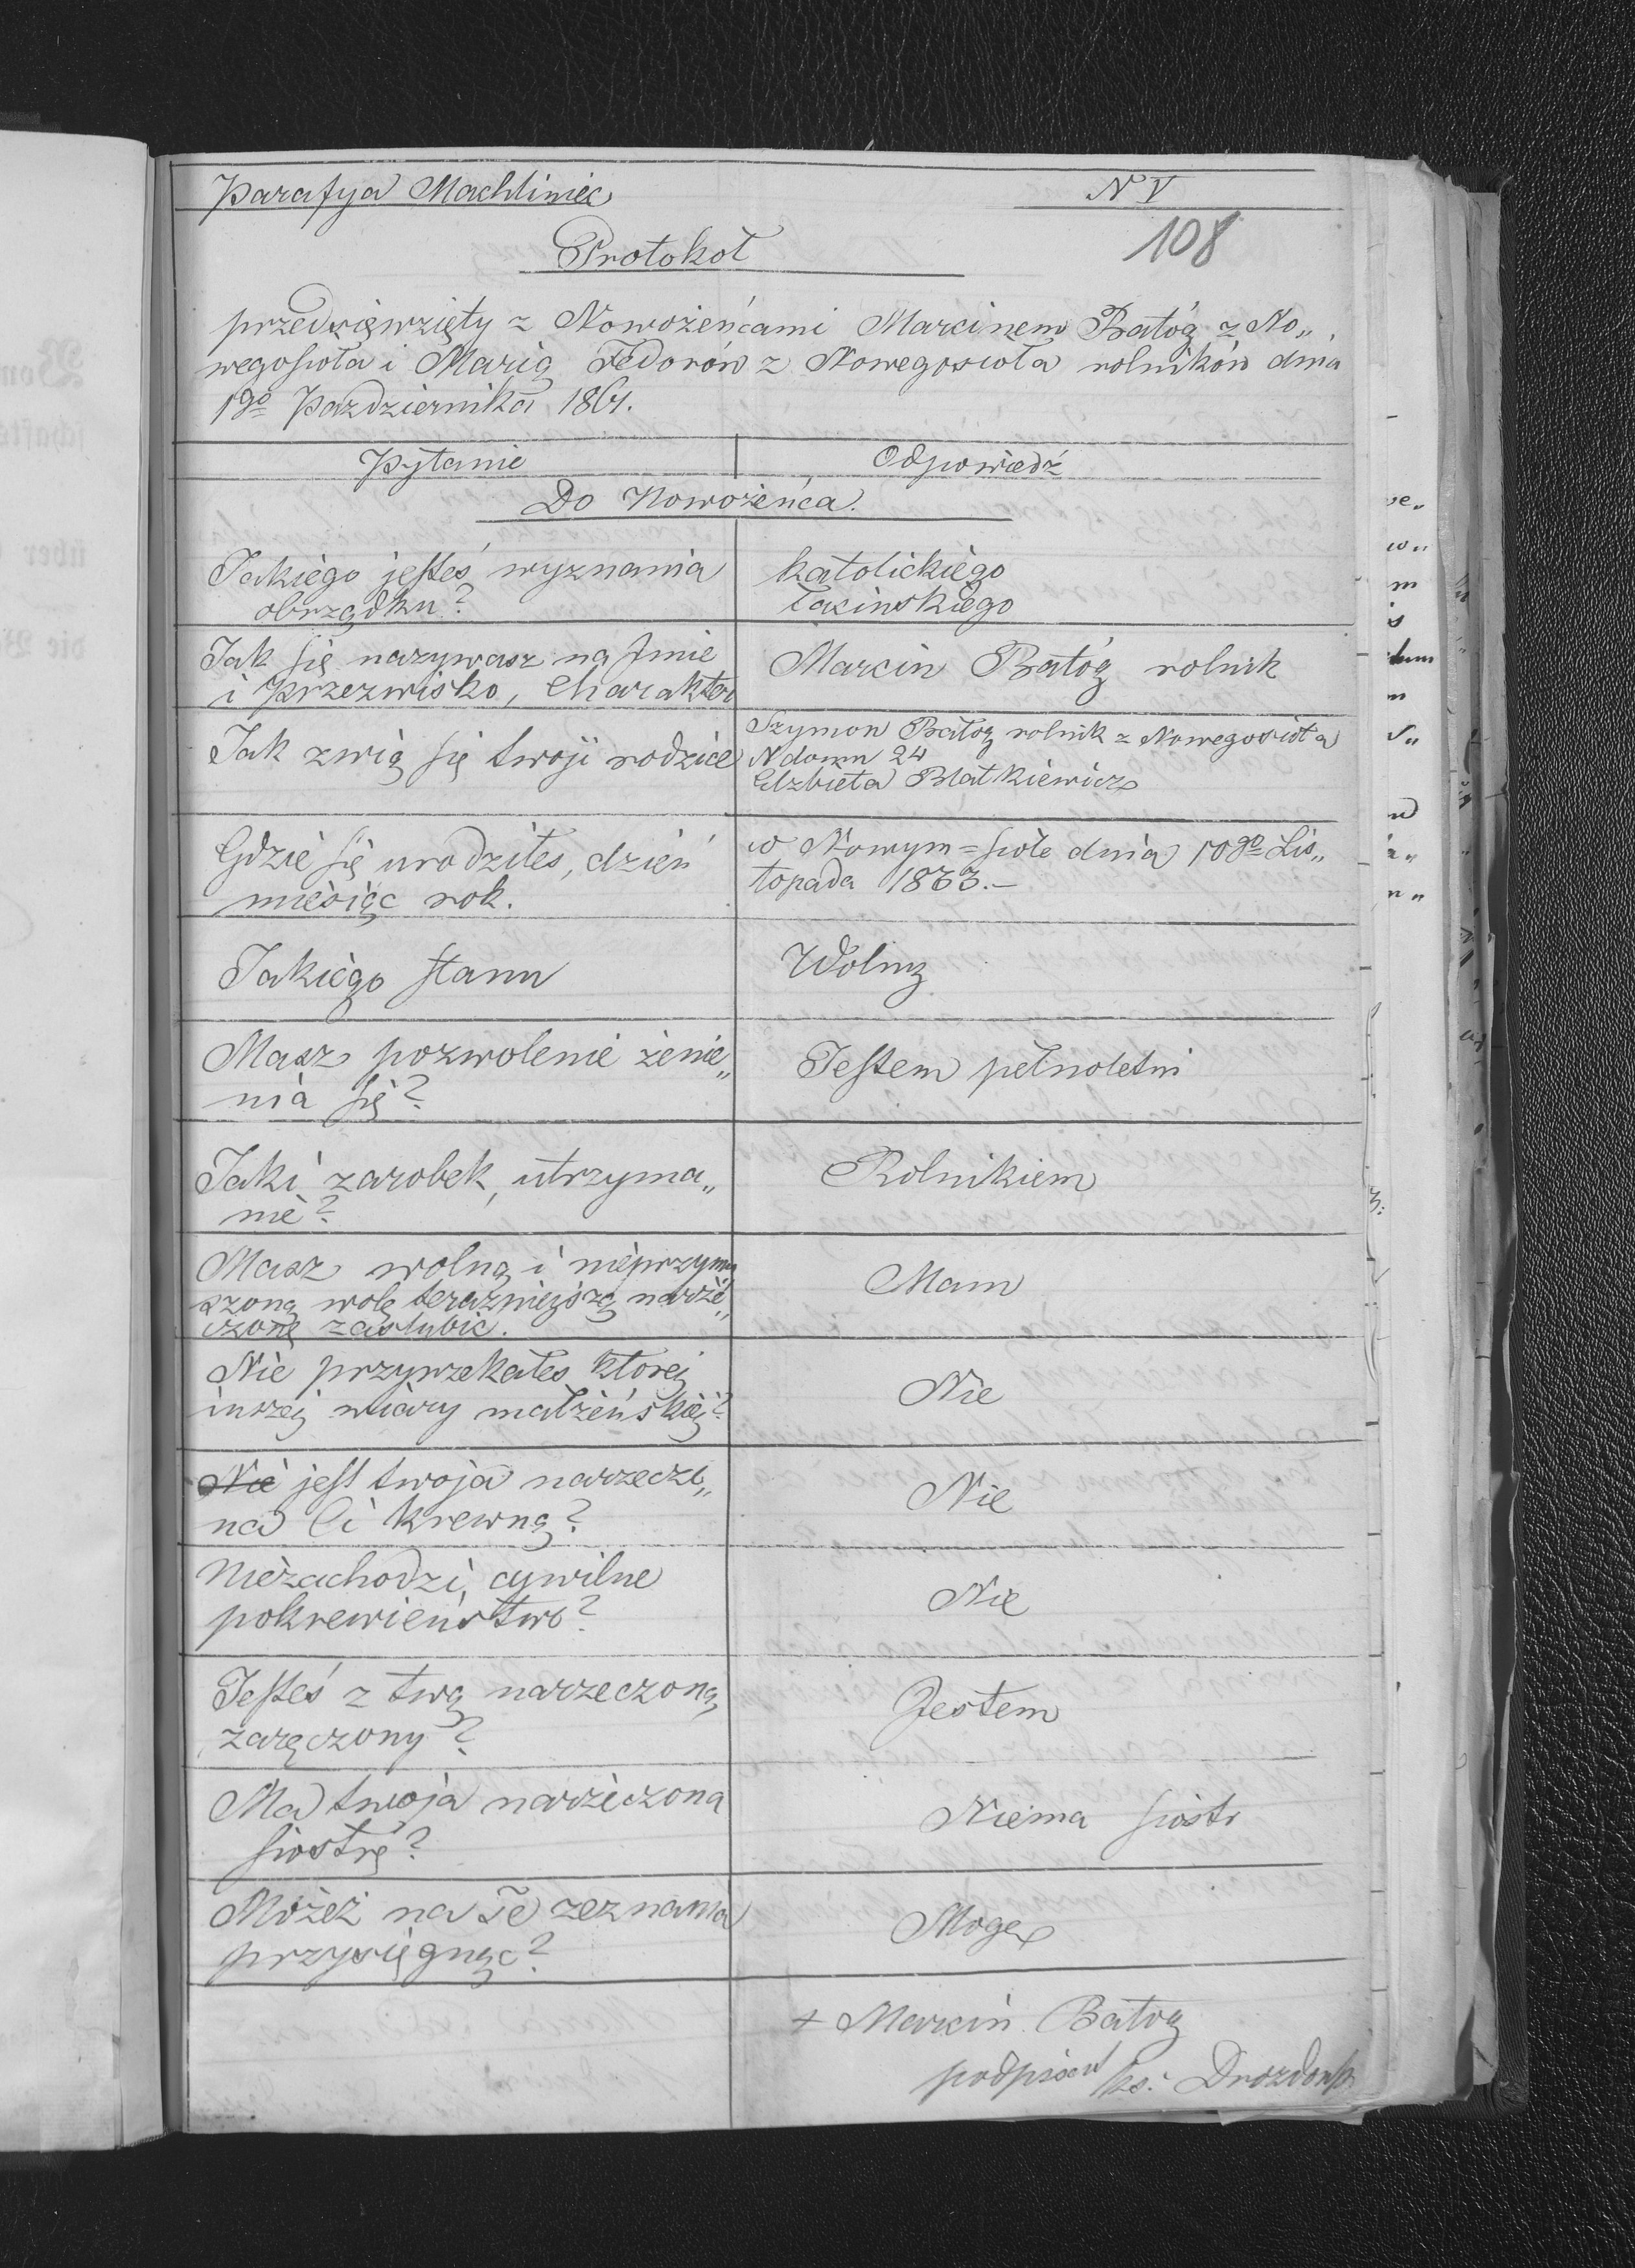 Parafya Machliniec
N V
108
Protokoł
przedsięwzięty z Nowożeńcami Marcinem Batóg z No„
wegosioła i Marią Fedorów z Nowegosioła rolników dnia
1go Października 1861.
Pytanie
Odpowiedź
Do Nowożeńca.
Jakiego jesteś wyznania
obrządku?
katolickiego
łacinskiego
Jak się nazywasz na Jmie
i Przezwisko, Charakter
Marcin Batóg rolnik
Jak zwią się twoji rodzice
Szymon Batog rolnik z Nowegosioła
N domu 24
Elzbieta Blatkiewicz
Gdzie się urodziłes, dzień
miesiąc rok.
w Nowym=siole dnia 10go Lis„
topada 1833.—
Jakiego stanu
Wolny
Masz pozwolenie żenie„
nia się?
Jestem pełnoletni
Jaki zarobek, utrzyma„
nie?
Rolnikiem
Masz wolną i nieprzymu
szoną wolę terazniejszą narze„
czonę zaslubic.
Mam
Nie przyrzekałes ktorej
inszej wiary małżeńskiej?
Nie
Nie jest twoja narzeczo„
na Ci krewną?
Nie
Niezachodzi, cywilne
pokrewieństwo?
Nie
Jesteś z twą narzeczoną
zaręczony?
Jestem
Ma twoja narzeczona
siostrę?
Niema siostr
Możeż na Te zeznania
przysięgnąc?
Moge
+ Marcin Batog
podpisał ks. Drozdowsk